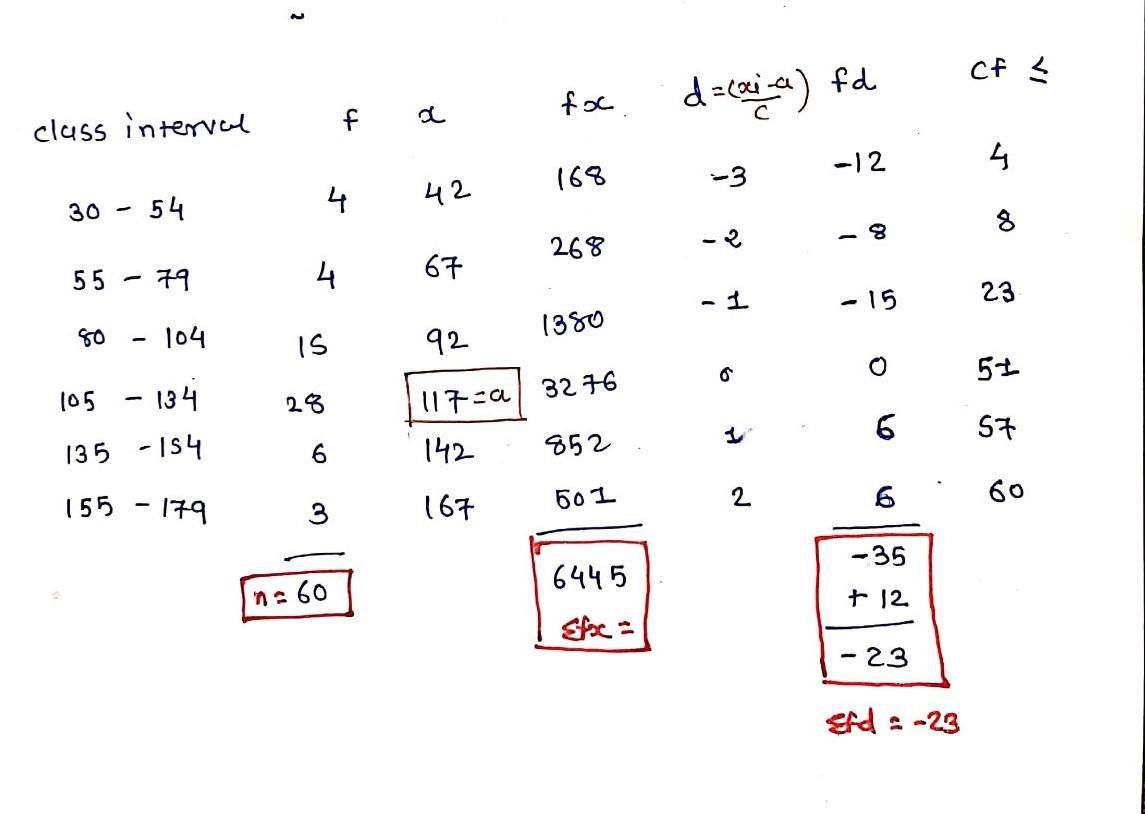 class interval f x fx d=(xi-a)/c fd cf ≤
30 - 54 4 42 168 -3 -12 4
55 - 79 4 67 268 -2 -8 8
80 - 104 15 92 1380 -1 -15 23
105 - 134 28 117=a 3276 0 0 51
135 - 154 6 142 852 1 6 57
155 - 179 3 167 501 2 6 60
n = 60 6445 -35
Σfx = + 12
-23
Σfd = -23